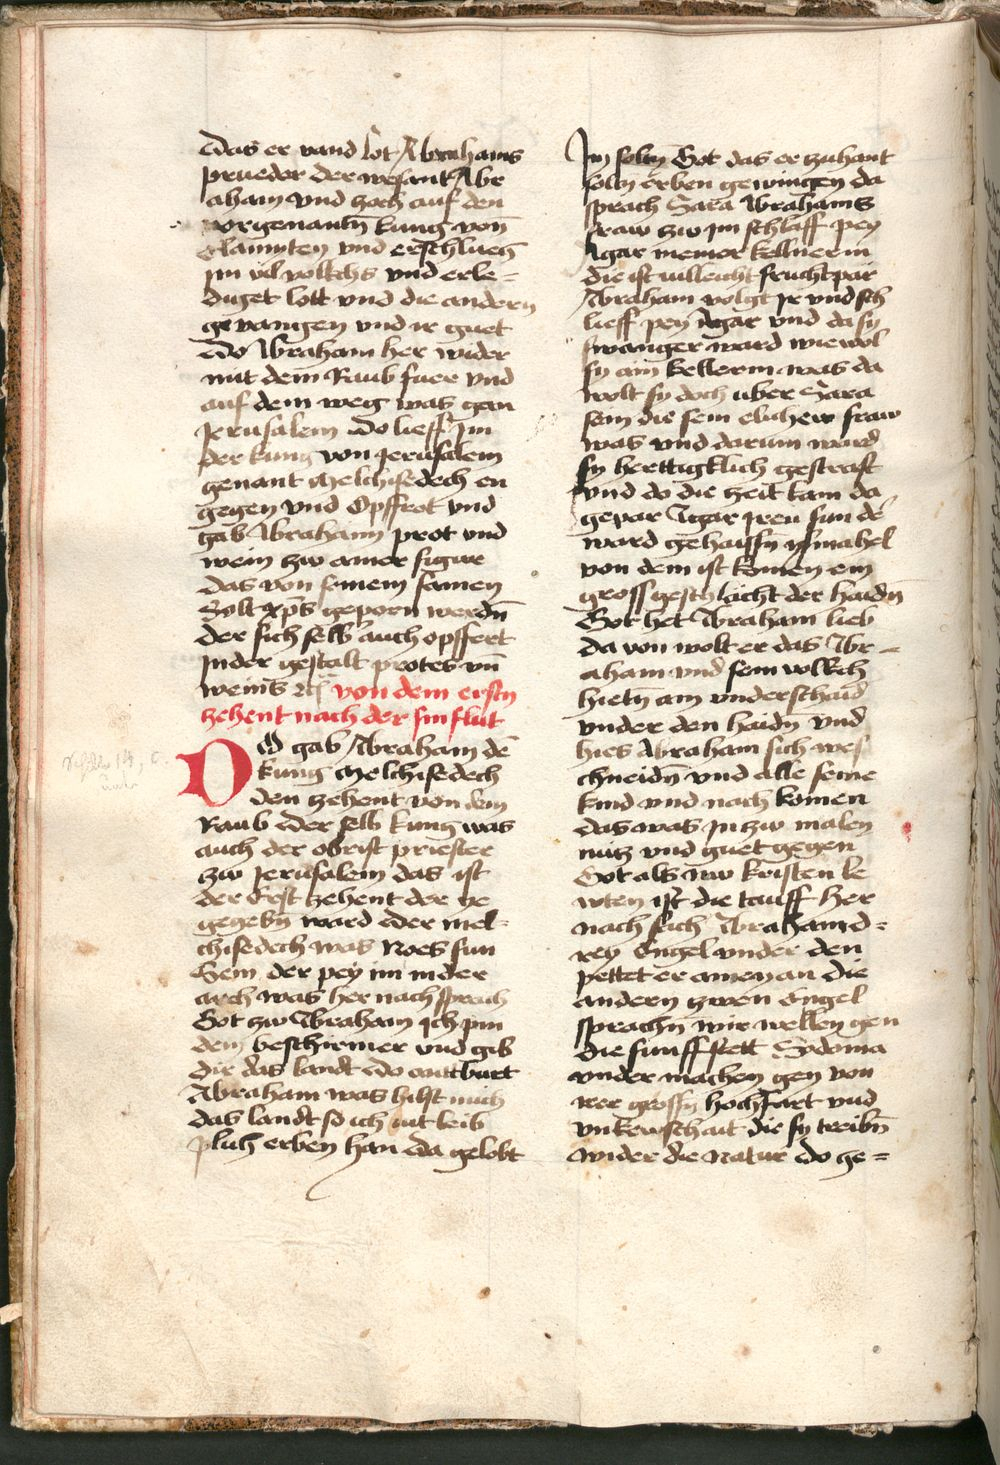 das er vand lot Abrahams
prueder der wesant Abr
aham vnd zoch auf den
vorgenantn̄ kung von
Elamyten vnd erschlueg
im vil volkchs vnd erle=
diget lott vnd die andern
gevangen vnd ir guet
Do Abraham her wider
mit dem Raub fuer vnd
auf dem weg was gen
Jerusalem Do lieff Im
der kung von Jerusalem
genant Melchisedech en
gegen vnd Opffrot vnd
gab Abraham prot vnd
wein zw ainer figur
das von seinem samen
Solt xp̄s geporn werdn̄
Der sich selb auch opffert
In der gestalt protes vn̄
weins von dem erstn
zehent nach der sinflut
DO gab Abraham de͞
kung Melchisedech
den zehent von dem
Raub Der selb kung was
auch der obrist priester
zw Jerusalem das ist
der Erst zehent der ye
gegebn̄ ward Der mel=
chisedech was Noes sun
Sem der pey im in der
arch was her nach sprach
Got zw Abraham ich pin
dein beschirmer vnd gib
dir das landt Do antburt
Abraham was hilft mich
das landt so ich nit leib
plich erben han Da gelobt
Im solin Got das er zuhant
solin erben gewingen Da
sprach Sara Abrahams
fraw zw im schlaff pey
Agar meiner kellnerin
die ist villeicht fruchtpar
Abraham volgt Ir vnd sch
lieff pey Agar vnd da sy
swanger ward wiewol
sy ain kellerin was da
wolt sy doch vber Sara
sein die sein elichew fraw
was vnd darum ward
sy herttigklich gestrafft
vnd do die zeit kam da
gepar Agar iren sun de͞
ward gehaissn̄ ysmahel
von dem ist komen ein
gross geschlächt der haidn̄
Got het Abraham lieb
Da von wolt er das Abr=
aham vnd sein volkch
hietn̄ ain vnderschaid
vnder den haidn̄ vnd
hies Abraham sich wes
chneidn̄ vnd alle seine
kind vnd nach komen
das was In zw malen
nücz vnd guet gegen
Got als nw kristen le
wten ist die tauff Her
nach sach Abraham d=
rey Engel vnder den
pettet er ainen an die
andern zwen Engel
sprachn̄ wir wellen gen
die funff stett Sodoma
vnder machen gen von
irer grossn̄ hochfart vnd
vnkewschait die sy treibn̄
wider die Natur Do ge=